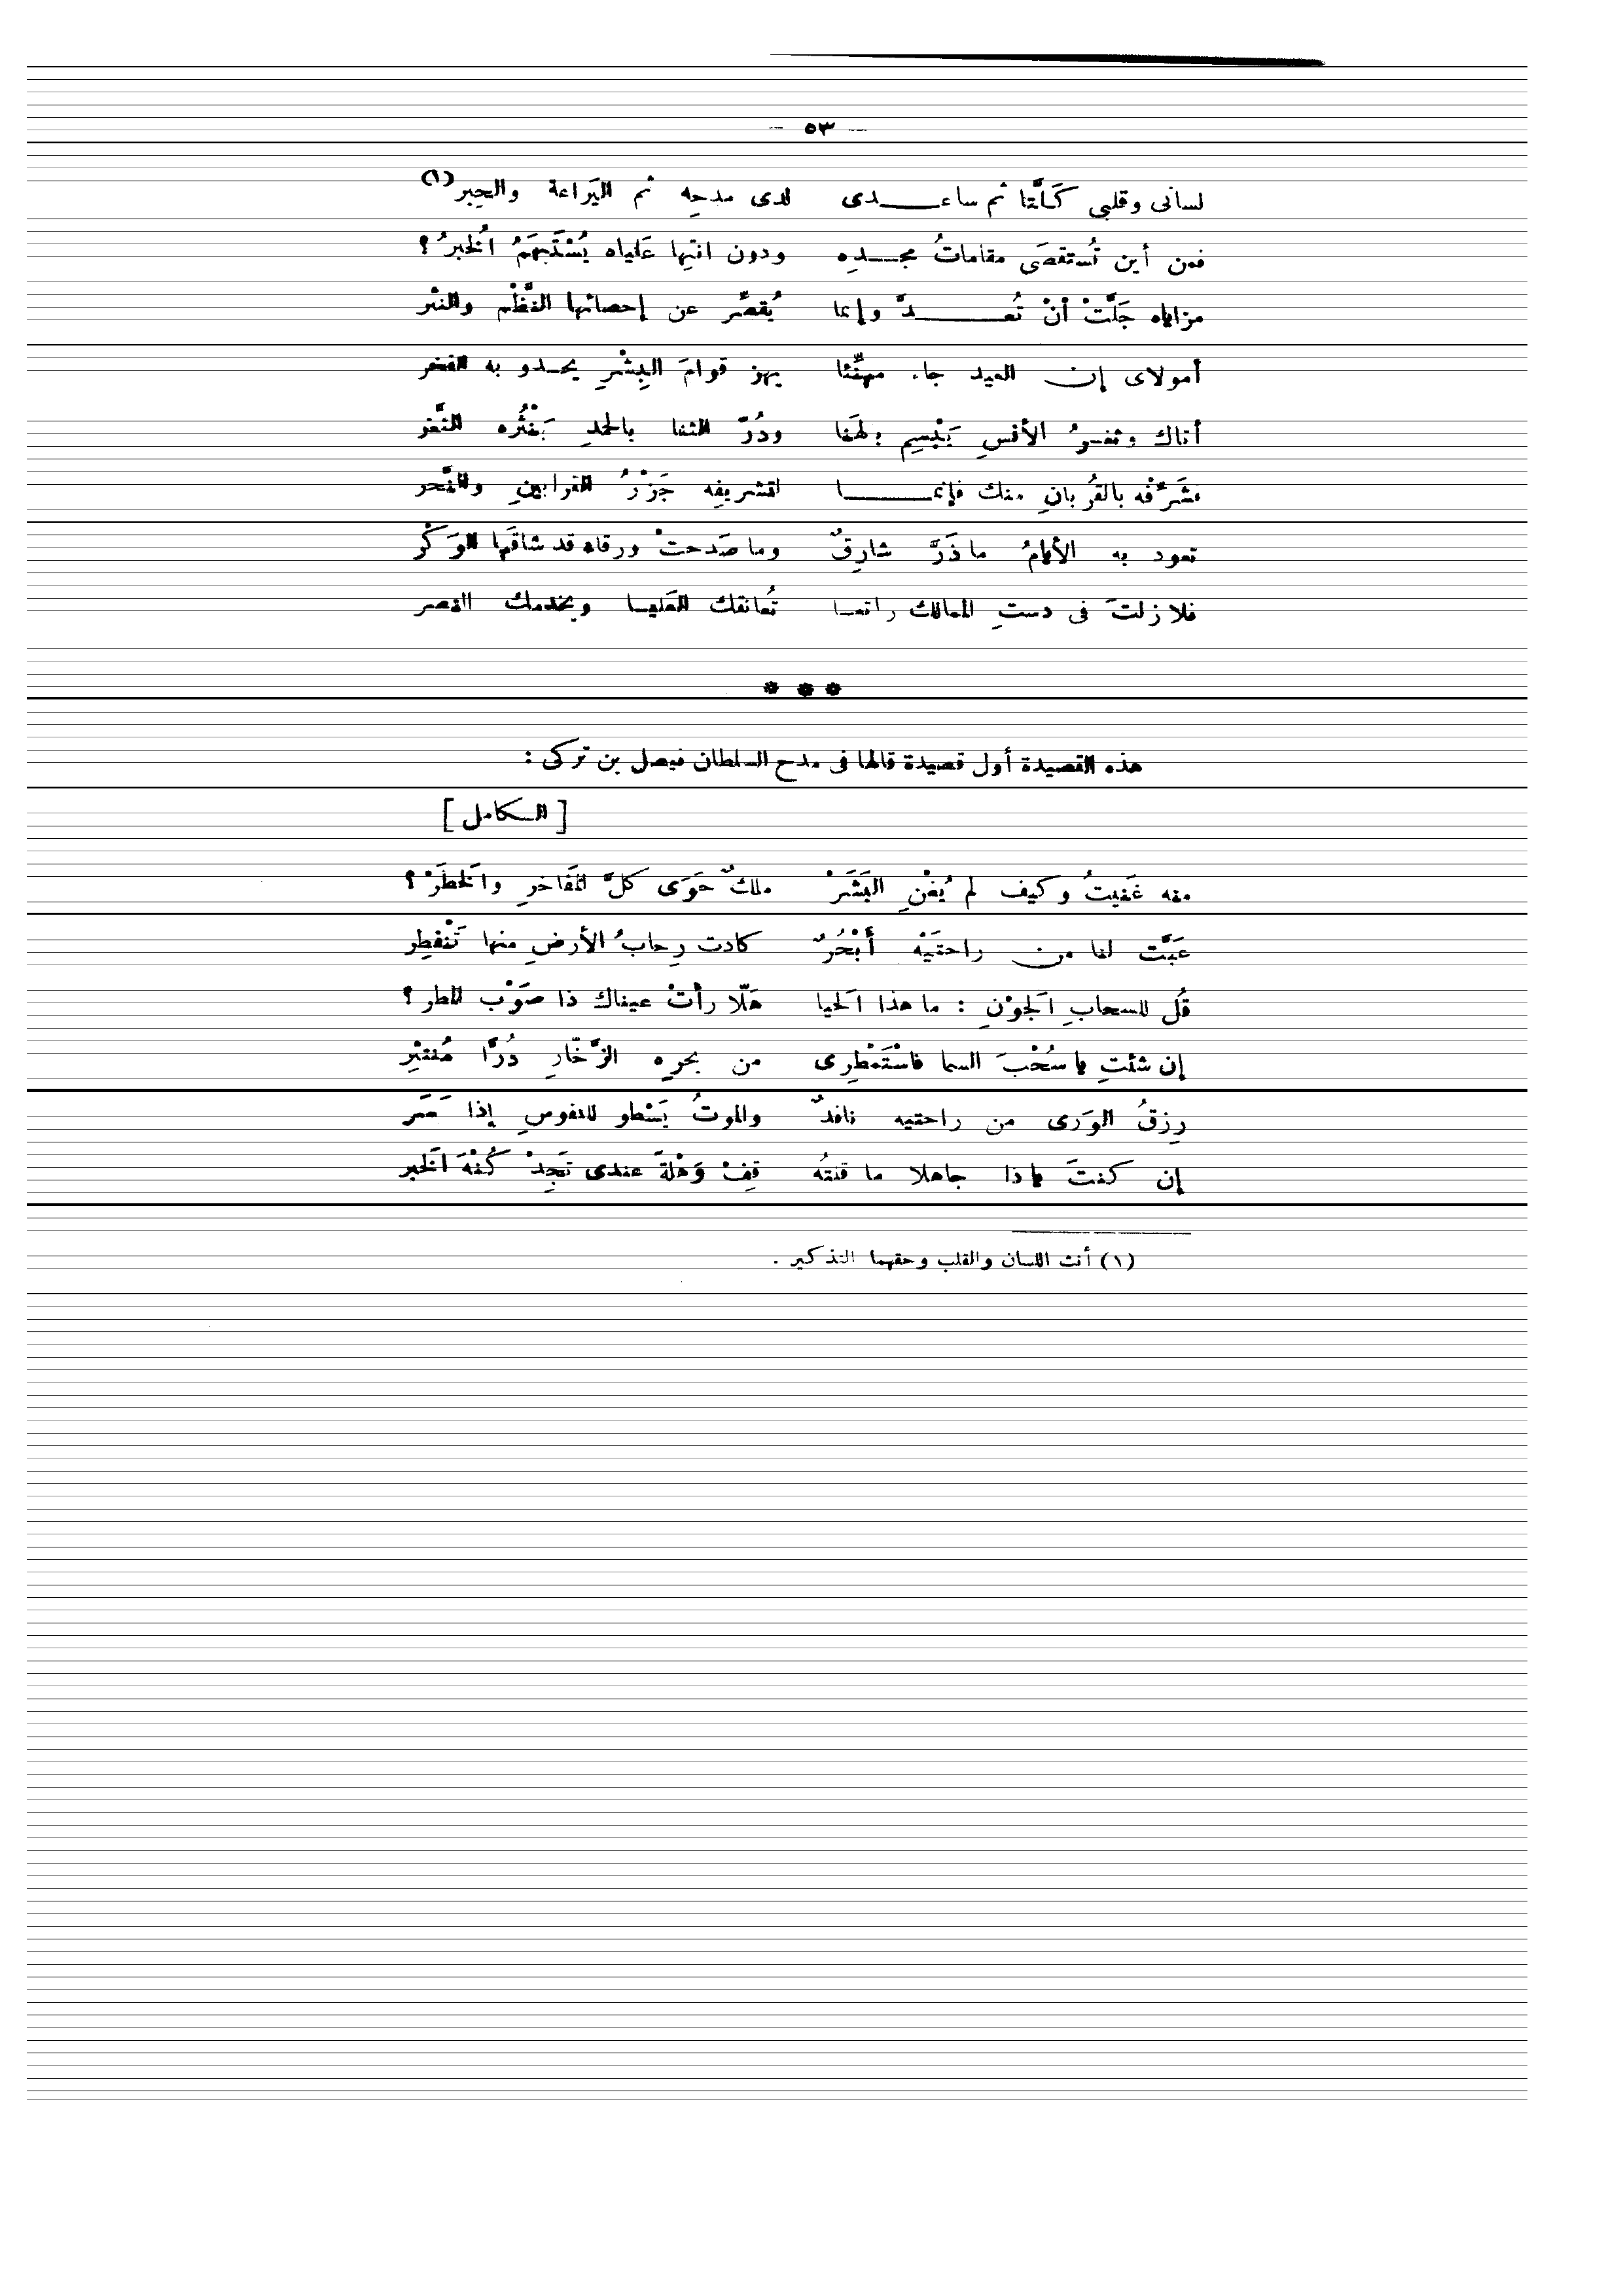 — ٥٣ —
لسانى وقلبى كَلَّتا ثم ساعدى لدى مدحِه ثم اليَراعة والحِبر (١)
فمن أين تُستقصَى مقاماتُ مجدِه ودون انتِها عَلياه يُسْتَبهَمُ الُخبرُ ؟
مزاياه جَلَّتْ أنْ تُعدَّ وإنما يُقصِّر عن إحصائها النَّظْم والنثر
أمولاى إن العيد جاء مهنِّئا يهز قوامَ البِشْرِ يحدو به الفخر
أتاك وثغرُ الأنسِ يَبْسِم بالهَنا ودُرّ الثنا بالحمدِ يَنْثُره الثَّغر
فشَرِّفْه بالقُربانِ منك فإنما لتشريفِه جَزْرُ القرابينِ والنَّحر
تعود به الأيامُ ماذَرَّ شارِقٌ وما صَدحتْ ورقاء قد شاقَها الوَكْر
فلا زلتَ فى دستِ الممالك راتعا تُعانقك العَليا ويخدمك النصر
* * *
هذه القصيدة أول قصيدة قالها فى مدح السلطان فيصل بن تركى :
[ الكامل ]
منه غَنيتُ وكيف لم يُغْنِ البَشَرْ ملكٌ حَوَى كلَّ المَفاخرِ والَخطَرْ ؟
عَبَّت لنا من راحتَيْه أَبْحُرٌ كادت رِحابُ الأرضِ منها تَنْفطِر
قُل للسحابِ الَجوْنِ : ما هذا الَحيا هَلّا رأتْ عيناك ذا صَوْب المطر ؟
إن شئتِ يا سُحْبَ السما فاسْتَمْطِرى من بحرِه الزَّخّارِ دُرًّا مُنتثِر
رِزقُ الوَرى من راحتيه نافدٌ والموتُ يَسْطو للنفوسِ إذا
إن كنتَ ياذا جاهلا ما قلتُه قِفْ وَهْلةً عندى تَجِدْ كُنْهَ الَخبر
(١) أنث اللسان والقلب وحقهما التذكير .